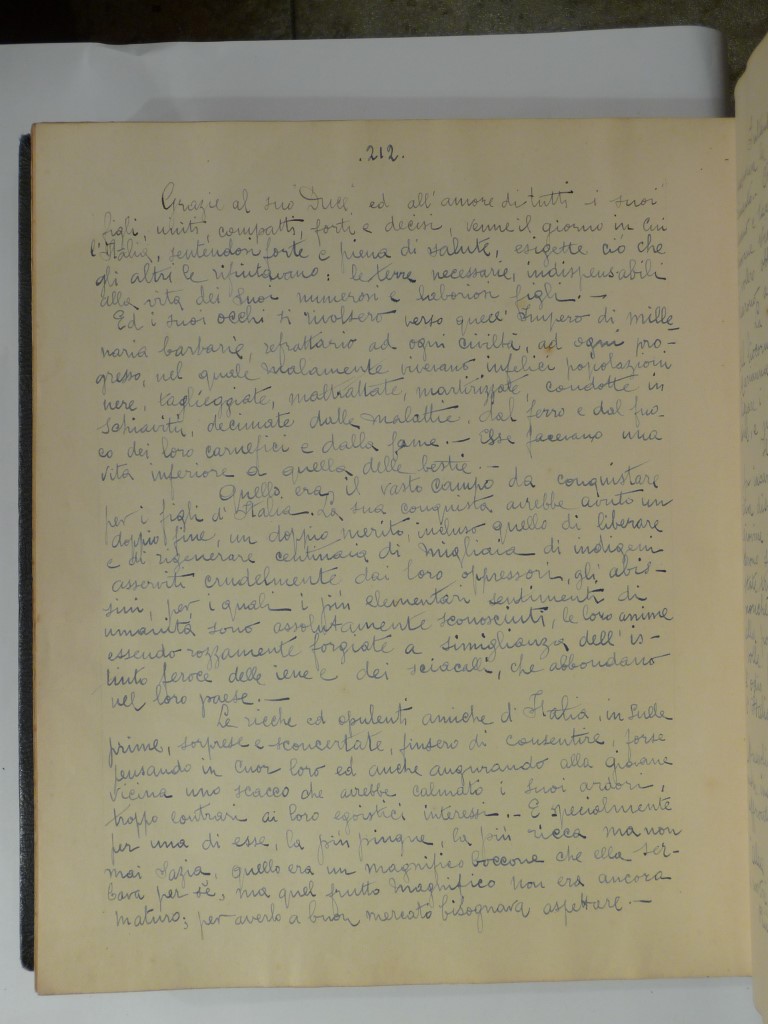 .212.
Grazie al suo Duce, ed all'amore di tutti i suoi
figli, uniti, compatti, forti e decisi, venne il giorno in cui
l'Italia, sentendosi forte e piena di salute, esigette ciò che
gli altri le rifiutavano: le terre necessarie, indispensabili
alla vita dei suoi numerosi e laboriosi figli. —
Ed i suoi occhi si rivolsero verso quell'Impero di mille
naria barbarie, refrattario ad ogni civiltà, ad ogni pro-
gresso, nel quale malamente vivevano infelici popolazioni
nere, taglieggiate, maltrattate, martirizzate, condotte in
schiavitù, decimate dalle malattie, dal ferro e dal fuo-
co dei loro carnefici e dalla fame. — Esse facevano una
vita inferiore a quella delle bestie. —
Quello era il vasto campo da conquistare
per i figli d'Italia. La sua conquista avrebbe avuto un
doppio fine, un doppio merito, incluso quello di liberare
e di rigenerare centinaia di migliaia di indigeni
asserviti crudelmente dai loro oppressori, gli abis-
sini, per i quali i più elementari sentimenti di
umanità sono assolutamente sconosciuti, le loro anime
essendo rozzamente forgiate a simiglianza dell'is-
tinto feroce delle iene e dei sciacalli, che abbondano
nel loro paese. —
Le ricche ed opulenti amiche d'Italia, in sulle
prime, sorprese e sconcertate, finsero di consentire, forse
pensando in cuor loro ed anche augurando alla giovane
vicina uno scacco che avrebbe calmato i suoi ardori,
troppo contrari ai loro egoistici interessi. — E specialmente
per una di esse, la più pingue, la più ricca ma non
mai sazia, quello era un magnifico boccone che ella ser-
bava per sè, ma quel frutto magnifico non era ancora
maturo; per averlo a buon mercato bisognava aspettare. —